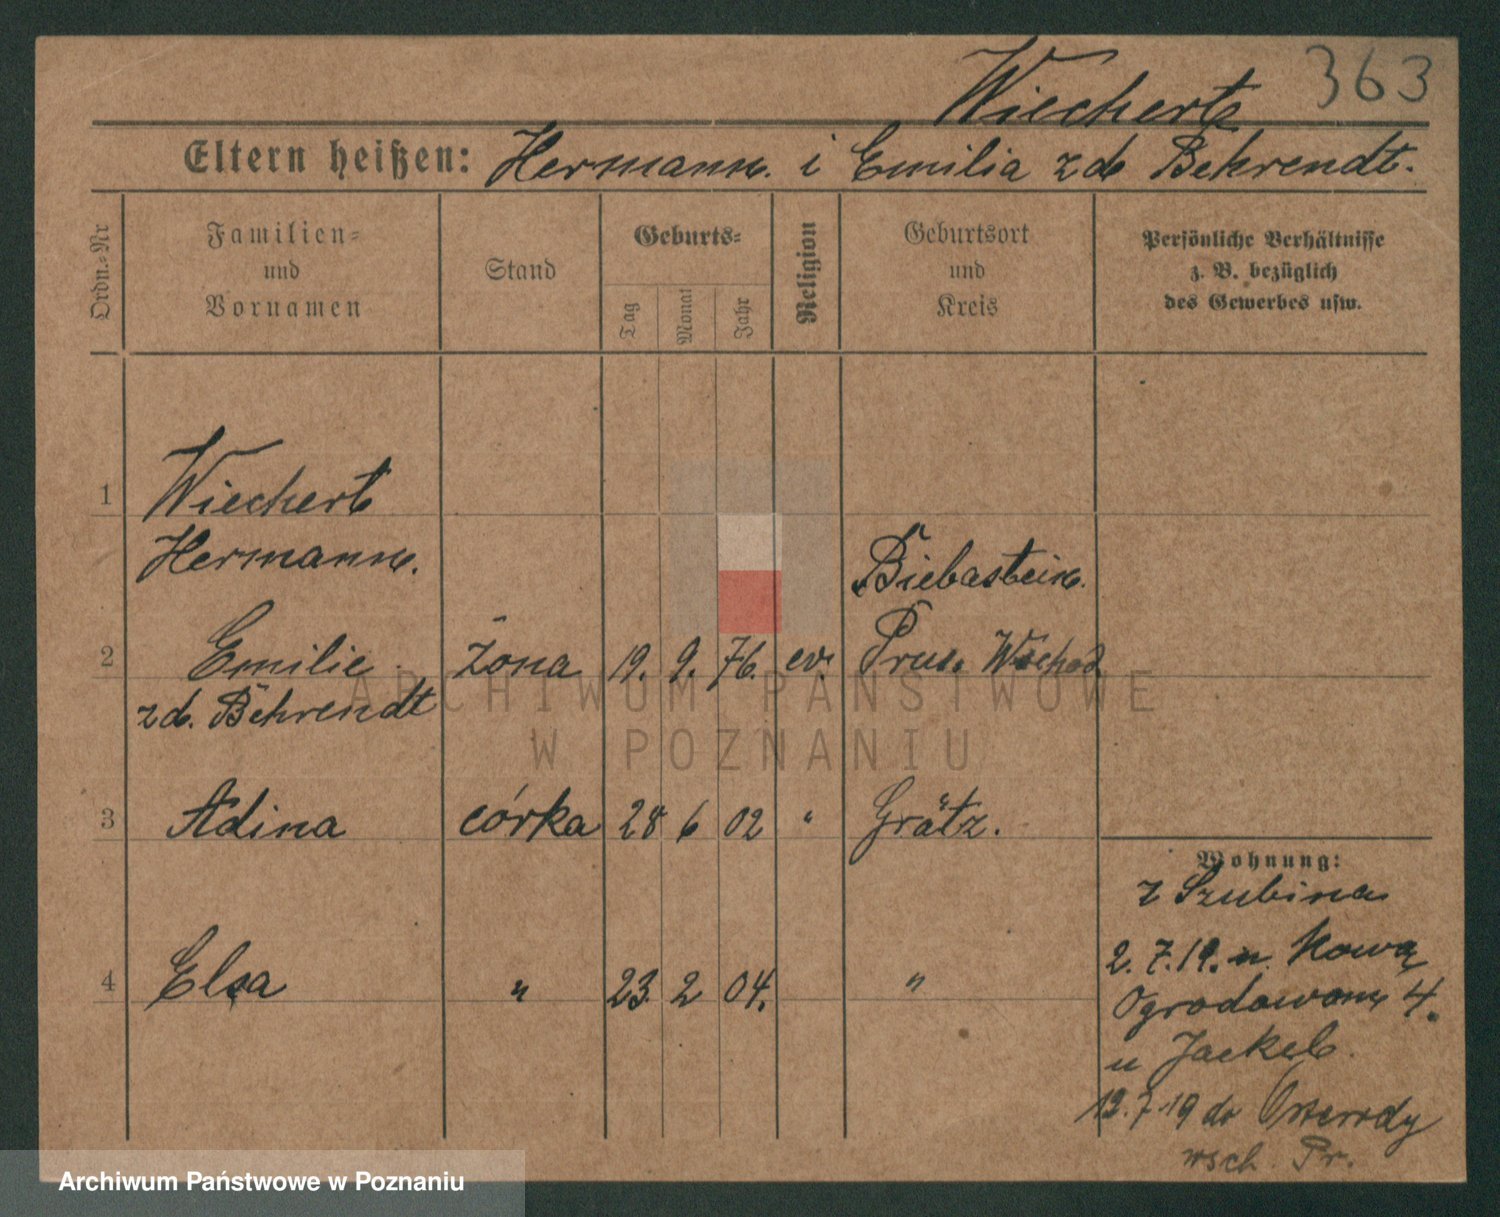 363
Wiechert
Eltern heißen: Hermann. i Emilia zd. Behrendt.
Ordn.-Nr
Familien-
und
Vornamen
Stand
Geburts-
Tag
Monat
Jahr
Religion
Geburtsort
und
Kreis
Persönliche Verhältnisse
z. B. bezüglich
des Gewerbes usw.
1 Wiechert
Hermann. Biebastein.
2 Emilie żona 19. 9. 76. ev. Prus. Wschod
zd. Behrendt
3 Adina córka 28 6 02 " Grätz.
Wohnung:
z Szubina
2. 7. 19. n. Nową
4 Elsa " 23. 2 04. "
Ogrodową 4.
u Jaekel.
12.7.19 do Osterody
wsch. Pr.
ARCHIWUM PAŃSTWOWE
W POZNANIU
Archiwum Państwowe w Poznaniu